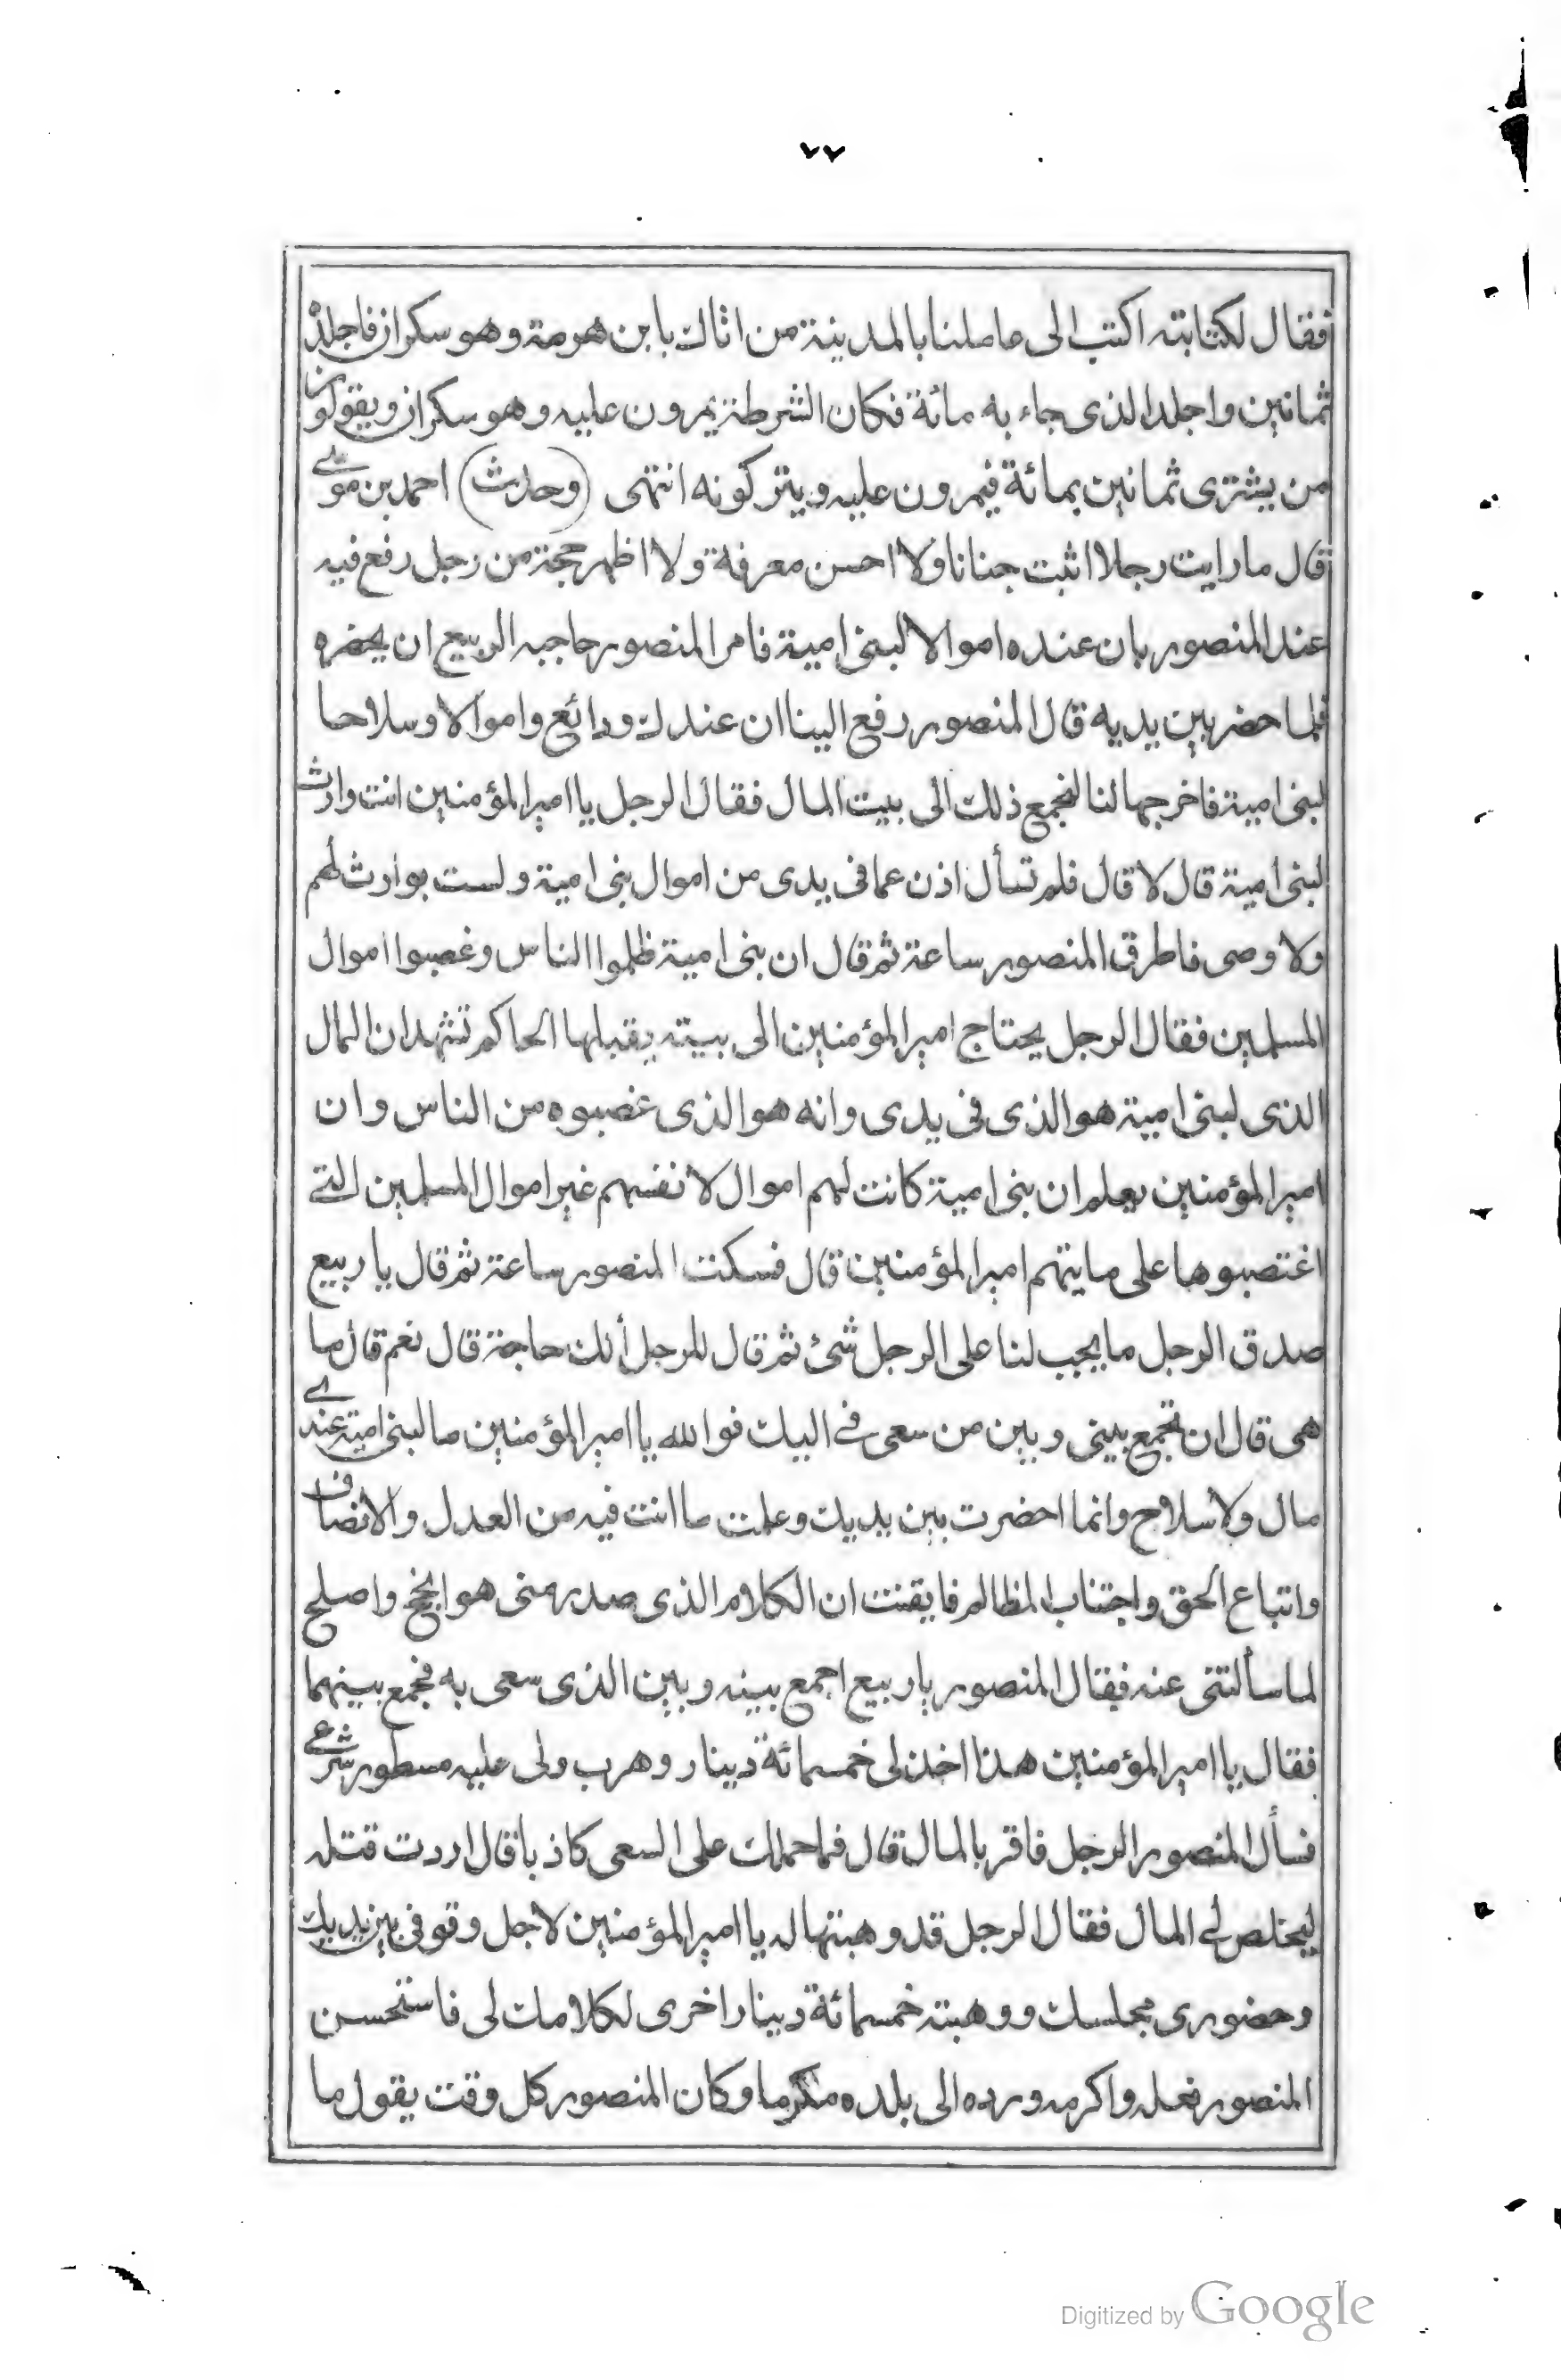 ٧٧
فقال لكتابته اكتب الى عاملنا بالمدينة من اتاك بابن هرمة وهو سكران فاجلده
ثمانين واجلد الذى جاء به مائة فكان الشرطة يمرون عليه وهو سكران ويقولون
من يشترى ثمانين بمائة فيمرون عليه ويتركونه انتهى (وحدث) احمد بن موسى
قال ما رايت رجلا اثبت جنانا ولا احسن معرفة ولا اظهر حجة من رجل رفع فيه
عند المنصور بان عنده اموالا لبنى امية فامر المنصور حاجبه الربيع ان يحضره
فلما حضر بين يديه قال المنصور رفع الينا ان عندك ودائع واموالا وسلاحا
لبنى امية فاخرجها لنا لنجمع ذلك الى بيت المال فقال الرجل يا امير المؤمنين انت وارث
لبنى امية قال لا قال فلم تسأل اذن عما فى يدى من اموال بنى امية ولست بوارث لهم
ولا وصى فاطرق المنصور ساعة ثم قال ان بنى امية ظلموا الناس وغصبوا اموال
المسلمين فقال الرجل يحتاج امير المؤمنين الى بينة يقبلها الحاكم تشهد ان المال
الذى لبنى امية هو الذى فى يدى وانه هو الذى غصبوه من الناس وان
امير المؤمنين يعلم ان بنى امية كانت لهم اموال لانفسهم غير اموال المسلمين التى
اغتصبوها على ما يتهم امير المؤمنين قال فسكت المنصور ساعة ثم قال يا ربيع
صدق الرجل ما يجب لنا على الرجل شئ ثم قال للرجل ألك حاجة قال نعم قال ما
هى قال ان تجمع بينى وبين من سعى فى اليك فوالله يا امير المؤمنين ما لبنى امية عندى
مال ولا سلاح وانما احضرت بين يديك وعلمت ما انت فيه من العدل والانصاف
واتباع الحق واجتناب المظالم فايقنت ان الكلام الذى صدر منى هو انجح واصلح
لما سألتنى عنه فقال المنصور يا ربيع اجمع بينه وبين الذى سعى به فجمع بينهما
فقال يا امير المؤمنين هذا اخذ لى خمسمائة دينار وهرب ولى عليه مسطور شرعى
فسأل المنصور الرجل فاقر بالمال قال فما حملك على السعى كاذبا قال اردت قتله
ليخلص لى المال فقال الرجل قد وهبتها له يا امير المؤمنين لاجل وقوفى بين يديك
وحضورى مجلسك ووهبته خمسمائة دينار اخرى لكلامك لى فاستحسن
المنصور فعله واكرمه ورده الى بلده مكرما وكان المنصور كل وقت يقول ما
Digitized by Google